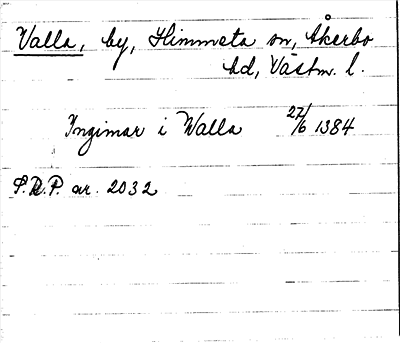 Valla, by, Himmeta sn, Åkerbo
hd, Västm. l.
Ingimar i Walla 27/6 1384
P.R.P. nr. 2032